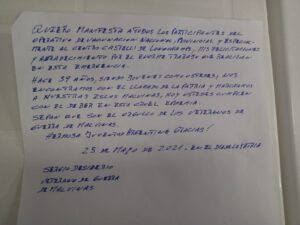 QUIERO MANIFESTAR A TODOS LOS PARTICIPANTES DEL
OPERATIVO DE VACUNACION NACIONAL, PROVINCIAL Y ESPECIAL-
MENTE AL CENTRO CASTELLI DE LOMA HERMOSA, MIS FELICITACIONES
Y AGRADECIMIENTO POR EL ENORME TRABAJO QUE REALIZAN
EN ESTA EMERGENCIA.
HACE 39 AÑOS, SIENDO JOVENES COMO USTEDES, NOS
ENCONTRAMOS CON EL LLAMADO DE LA PATRIA Y MARCHAMOS
A NUESTRAS ISLAS MALVINAS, HOY USTEDES CUMPLEN
CON EL DEBER EN ESTA CRUEL EPIDEMIA.
SEPAN QUE SON EL ORGULLO DE LOS VETERANOS DE
GUERRA DE MALVINAS.
HERMOSA JUVENTUD ARGENTINA GRACIAS!
25 DE MAYO DE 2021. EN EL DIA DE LA PATRIA
SERGIO DESIDERIO
VETERANO DE GUERRA
DE MALVINAS